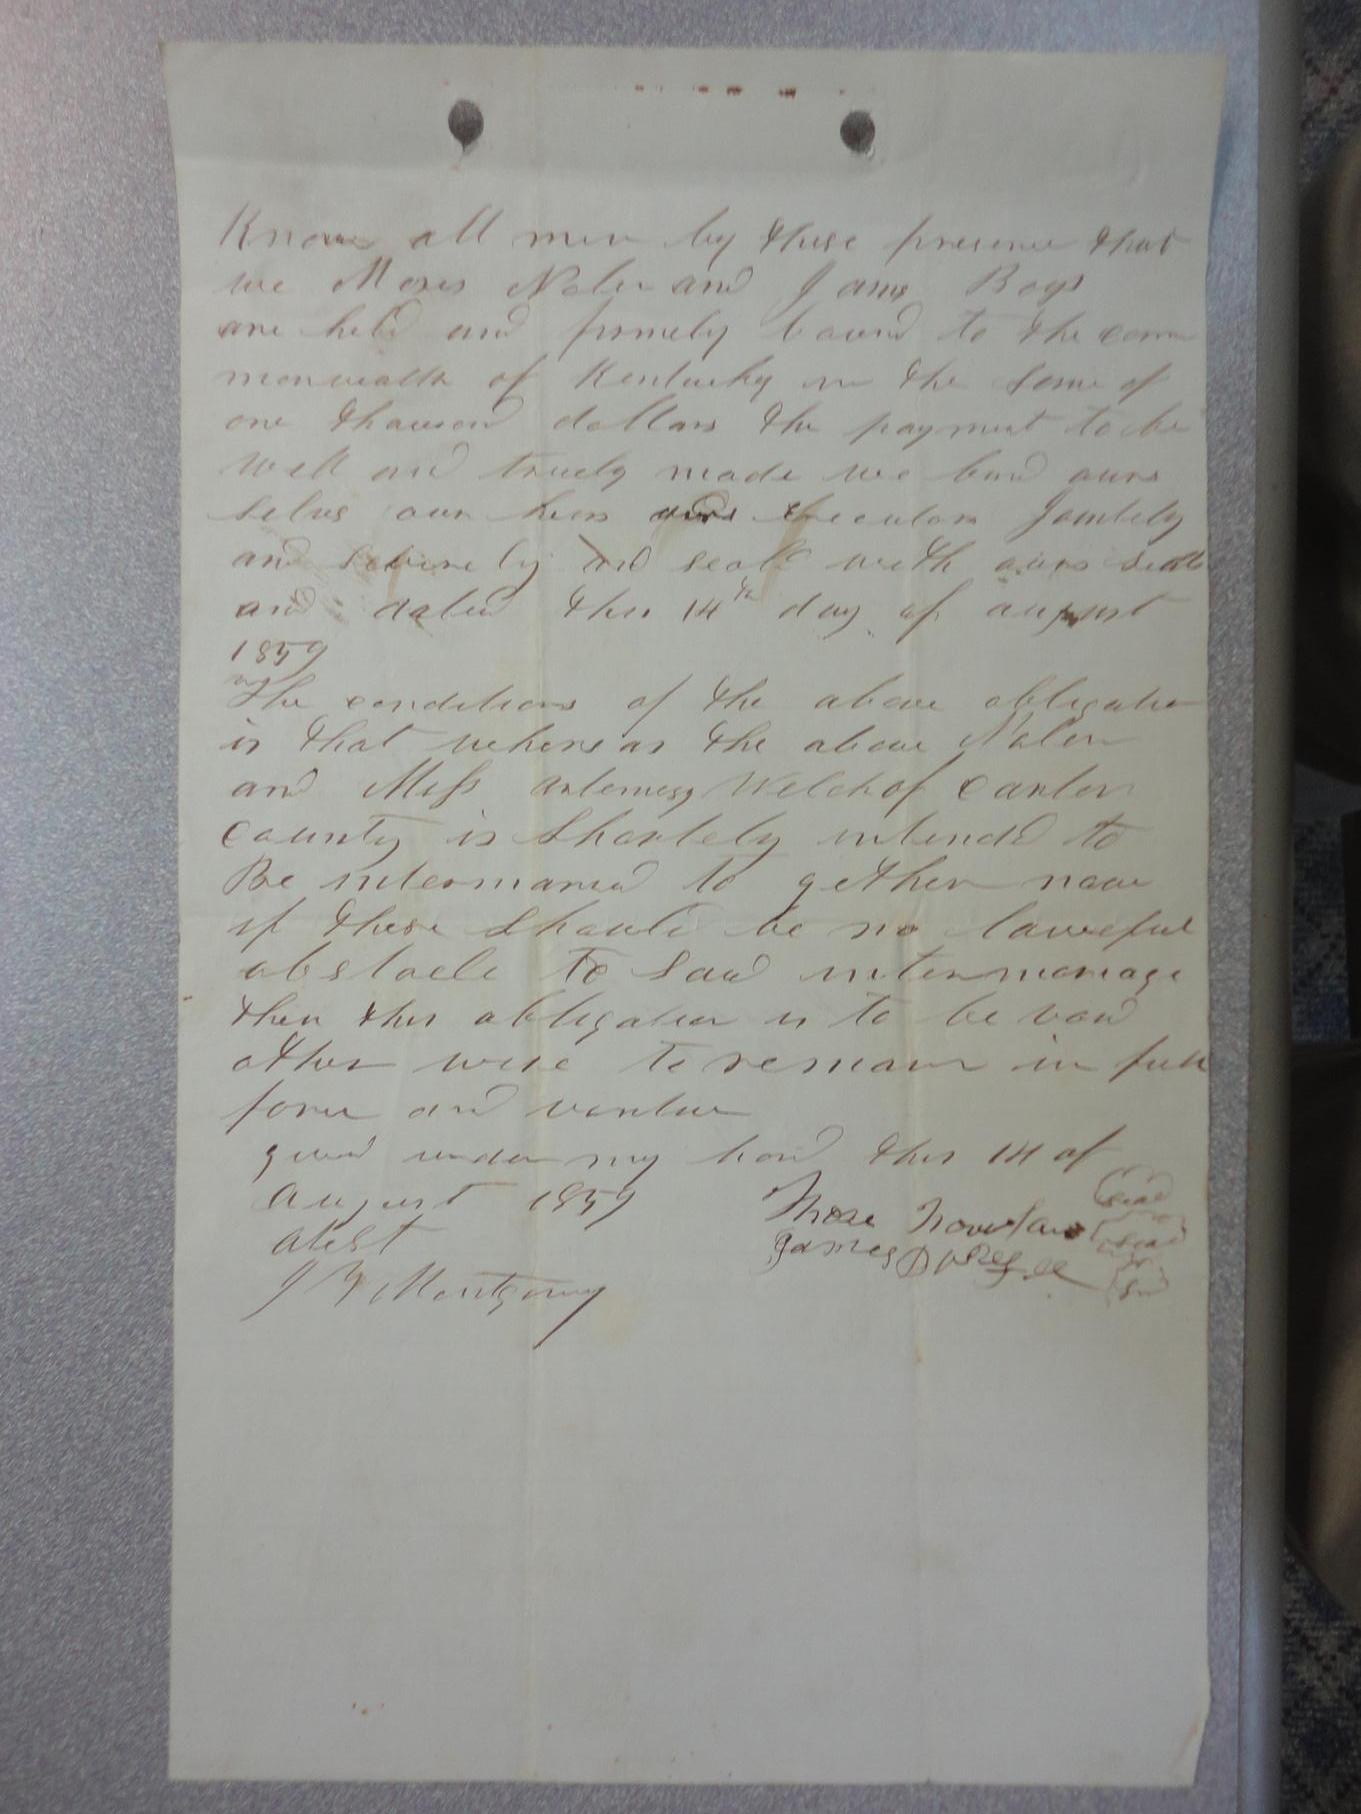 Know all men by these presence that
we Moses Nolen and James Boys
are held and firmely bound to the com
monwealth of Kentucky in the some of
one thausand dollars the payment to be
well and truely made we bind ours
selvs our heirs and executors Jointely
and severely and seald with ours seals
and dated this 14th day of august
1859
The conditions of the above obligation
is that whereas the above Nolen
and Miss artemesy Welch of Carter
county is Shortely intendd to
Be intermaried to gether now
if there Should be no lawfful
obstacle To Said intermariage
then this obligation is to be void
other wise to remain in full
force and vertue
given under my hand this 14 of
august 1859
Mose
seal
atest
James
seal
J Montgomry